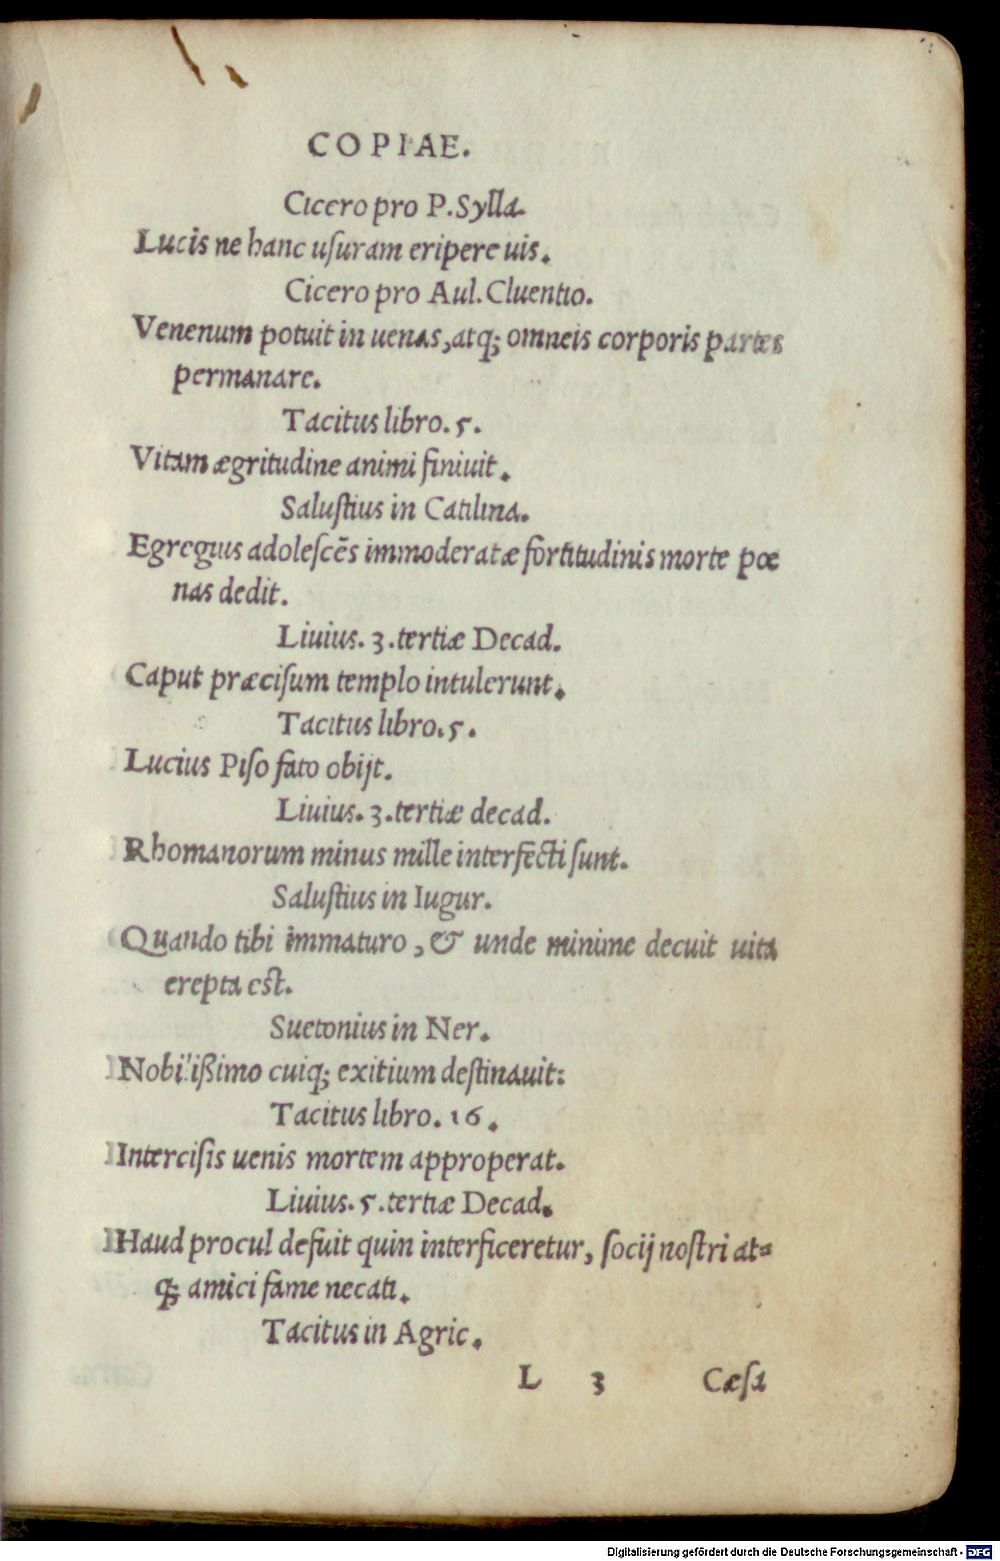 COPIAE.
Cicero pro P. Sylla.
Lucis ne hanc uſuram eripere uis.
Cicero pro Aul. Cluentio.
Venenum potuit in uenas, atq; omneis corporis partes
permanare.
Tacitus libro. 5.
Vitam ægritudine animi finiuit.
Saluſtius in Catilina.
Egregius adoleſcẽs immoderatæ fortitudinis morte pœ
nas dedit.
Liuius. 3. tertiæ Decad.
Caput præciſum templo intulerunt.
Tacitus libro. 5.
Lucius Piſo fato obijt.
Liuius. 3. tertiæ decad.
Rhomanorum minus mille interfecti ſunt.
Saluſtius in Iugur.
Quando tibi immaturo, & unde minime decuit uita
erepta eſt.
Suetonius in Ner.
Nobilißimo cuiq; exitium deſtinauit:
Tacitus libro. 16.
Interciſis uenis mortem approperat.
Liuius. 5. tertiæ Decad.
Haud procul defuit quin interficeretur, ſocij noſtri at=
q; amici fame necati.
Tacitus in Agric.
L 3 Cæſa
Digitalisierung gefördert durch die Deutsche Forschungsgemeinschaft - DFG